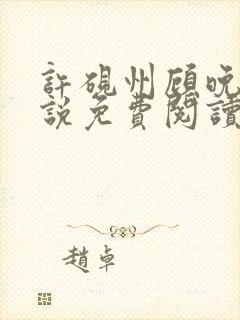 許硯州顧晚
說免費閱讀
趙卓